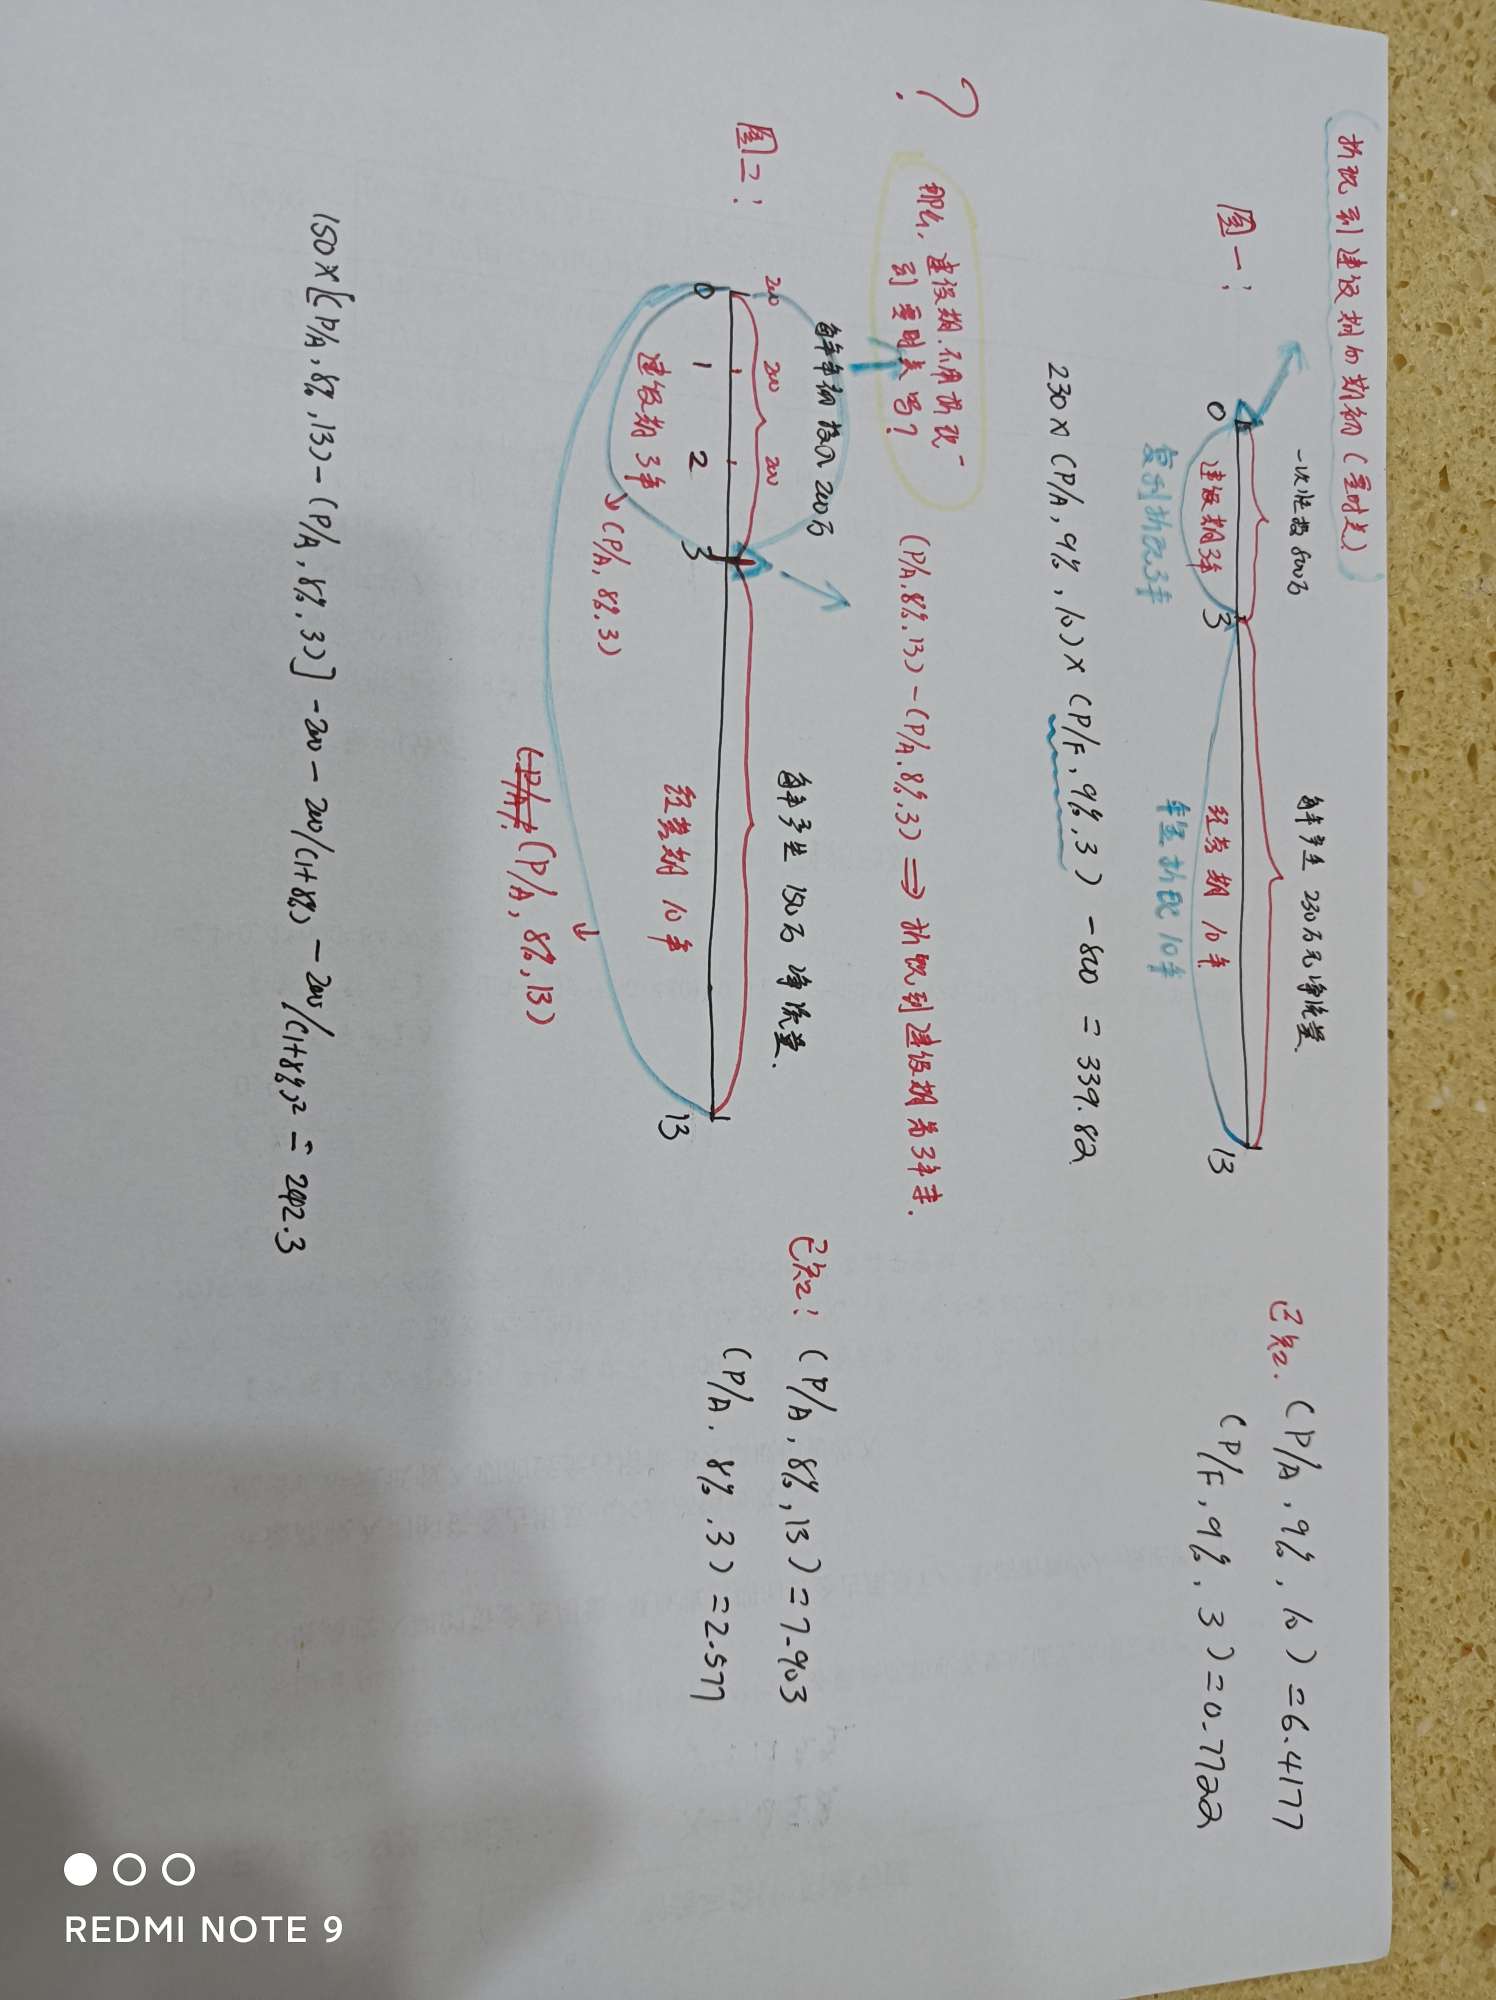 折现到建设期的期初(零时点)
图一:
一次性投800万
每年产生 230万元净流量
0
3
13
建设期3年
经营期 10年
复利折现3年
年金折现10年
已知: (P/A, 9%, 10) = 6.4177
(P/F, 9%, 3) = 0.7722
230×(P/A, 9%, 10)×(P/F, 9%, 3) -800 = 339.82
?
那么, 建设期.不用折现
到零时点吗?
(P/A.8%.13)-(P/A.8%.3) ⇒ 折现到建设期第3年末.
图二:
每年年初投入200万
每年产生 150万 净流量.
200
200
200
0
1
2
3
13
建设期 3年
经营期 10年
(P/A, 8%.3)
(P/A, (P/A, 8%, 13)
已知: (P/A, 8%, 13) = 7.903
(P/A. 8%. 3) = 2.577
150×[(P/A, 8%, 13)-(P/A, 8%, 3)] -200 - 200/(1+8%) - 200/(1+8%)² = 242.3